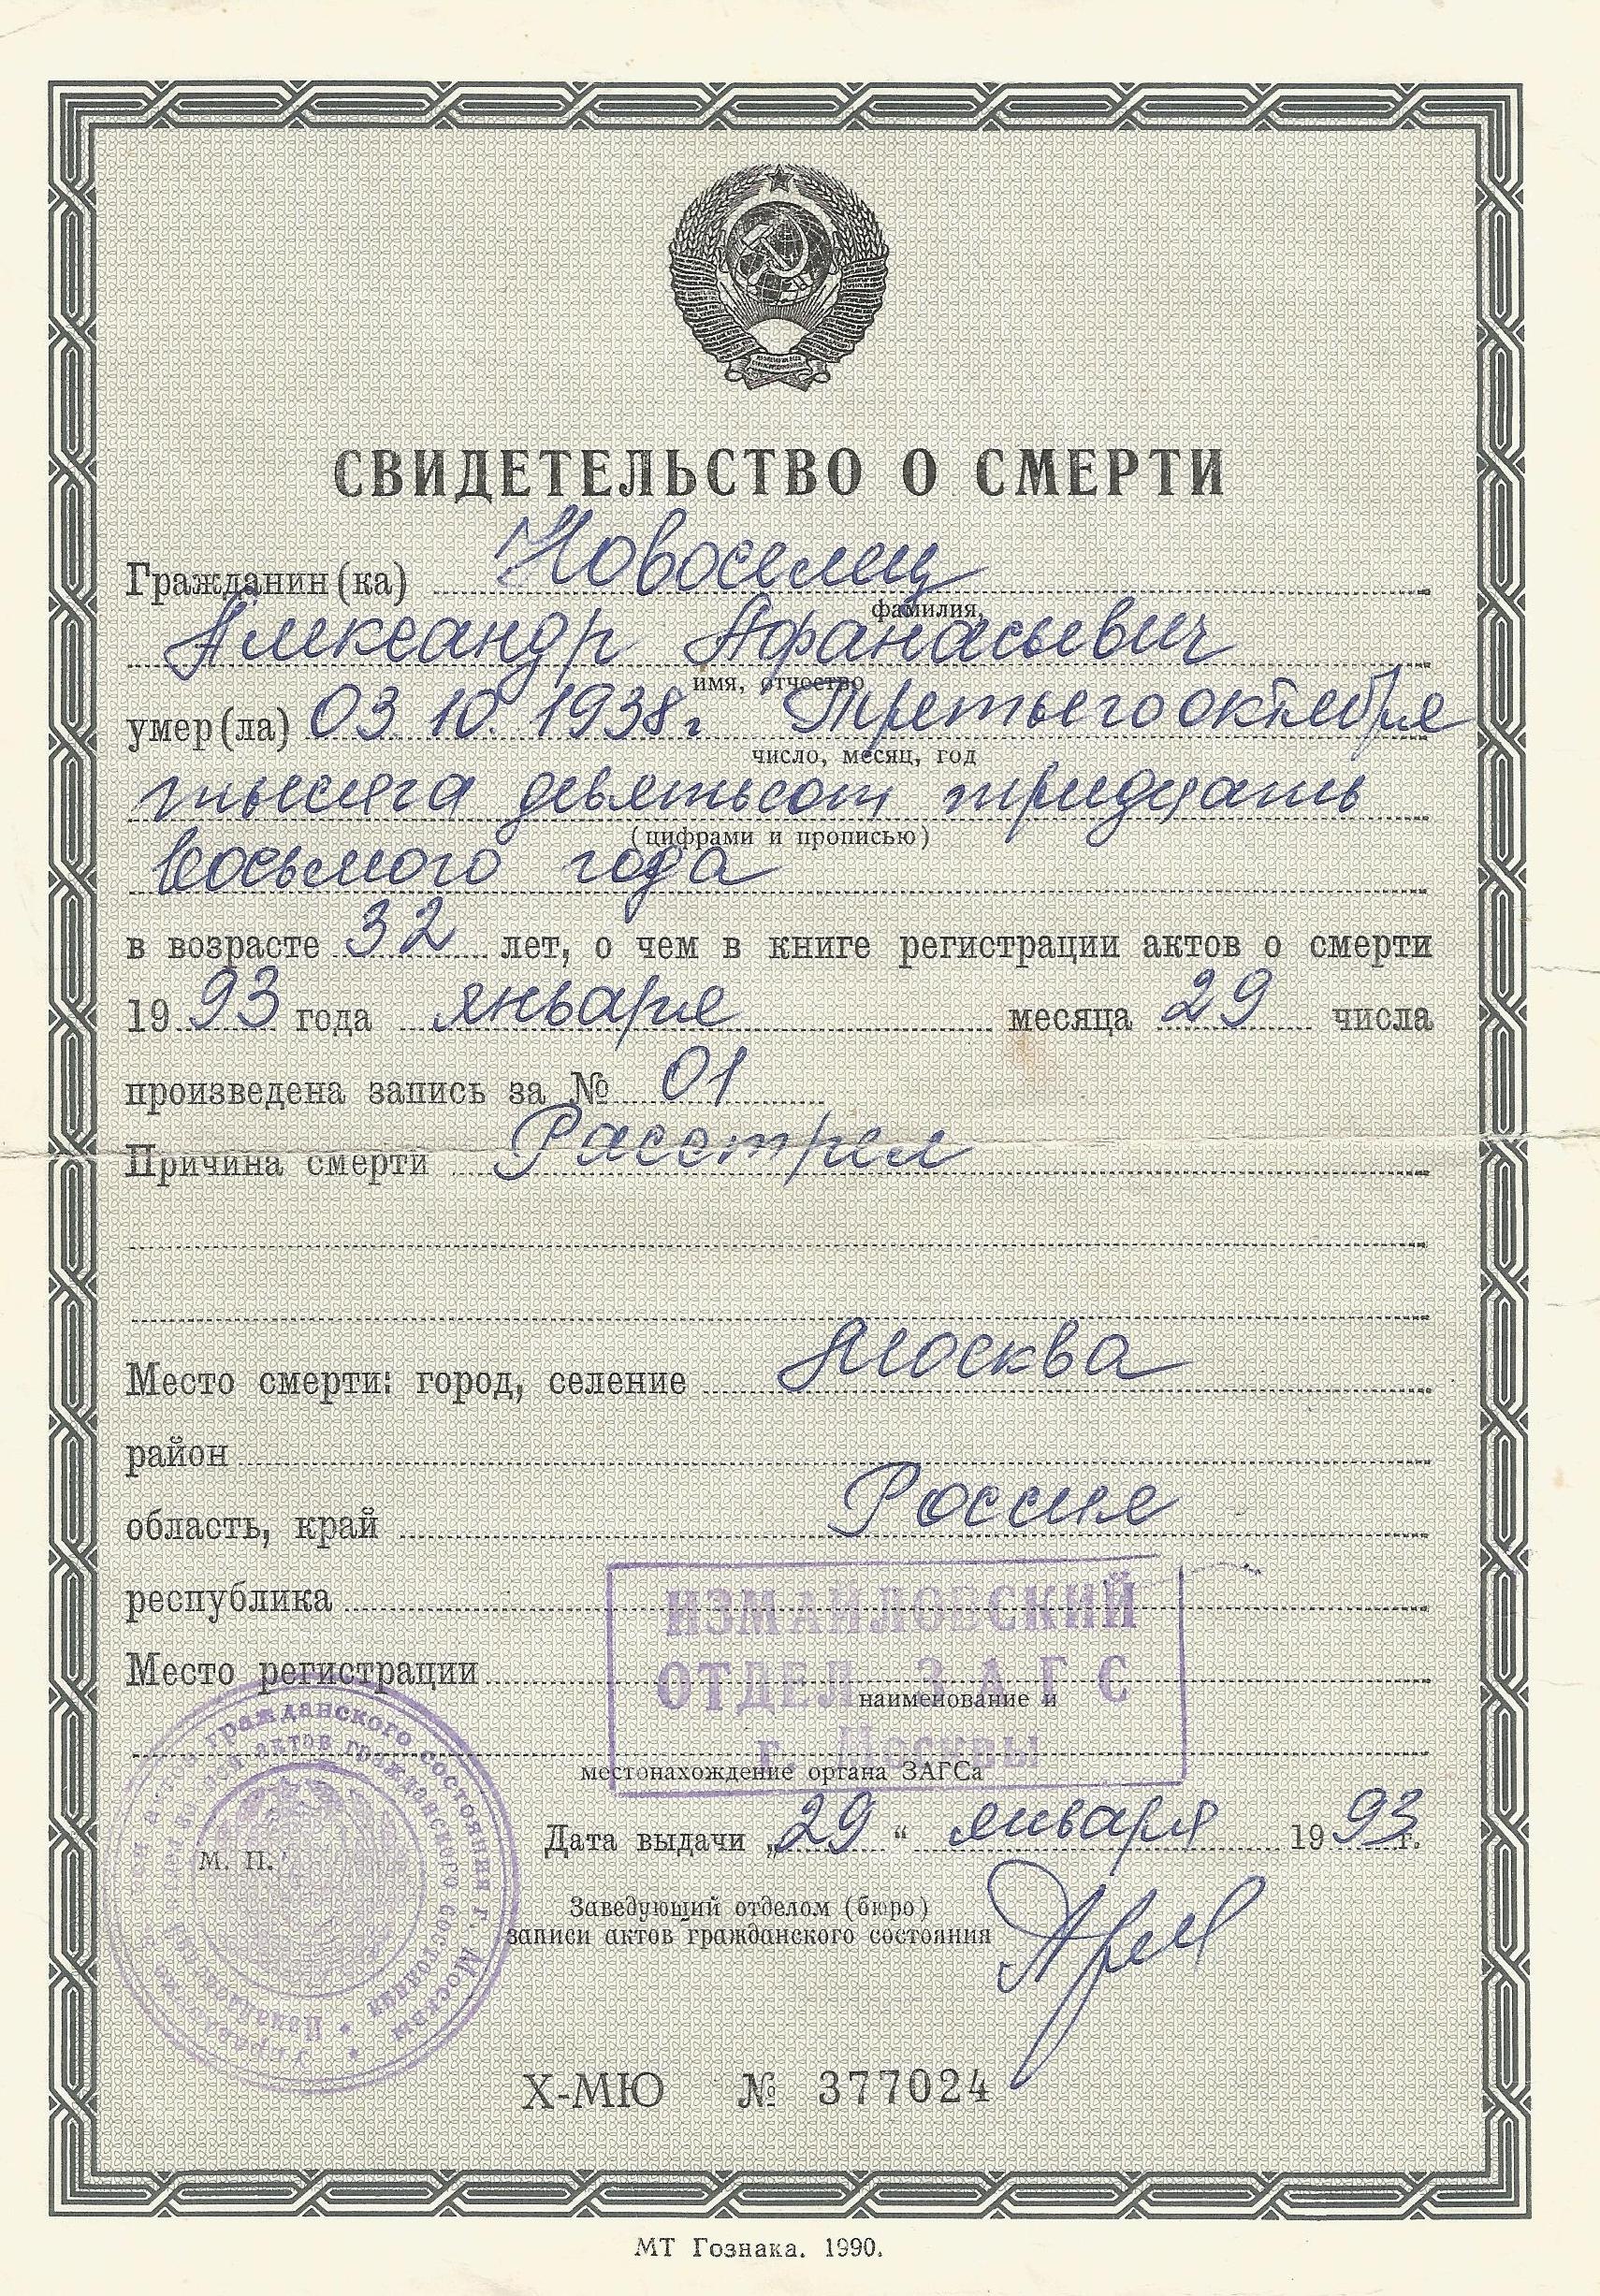 СВИДЕТЕЛЬСТВО О СМЕРТИ
Гражданин(ка) Новоселец
фамилия,
Александр Афанасьевич
имя, отчество
умер(ла) 03. 10. 1938г Третьего октября
число, месяц, год
тысяча девятьсот тридцать
(цифрами и прописью)
восьмого года
в возрасте 32 лет, о чем в книге регистрации актов о смерти
1993 года января месяца 29 числа
произведена запись за № 01
Причина смерти Расстрел
Место смерти: город, селение Москва
район
область, край Россия
республика
ИЗМАЙЛОВСКИЙ
Место регистрации
ОТДЕЛ ЗАГС
наименование и
г. Москвы
местонахождение органа ЗАГСа
Дата выдачи „29“ января 1993 г.
М. П.
Заведующий отделом (бюро)
записи актов гражданского состояния
актов гражданского состояния г. Москвы
актов гражданского состояния
X-МЮ № 377024
МТ Гознака. 1990.